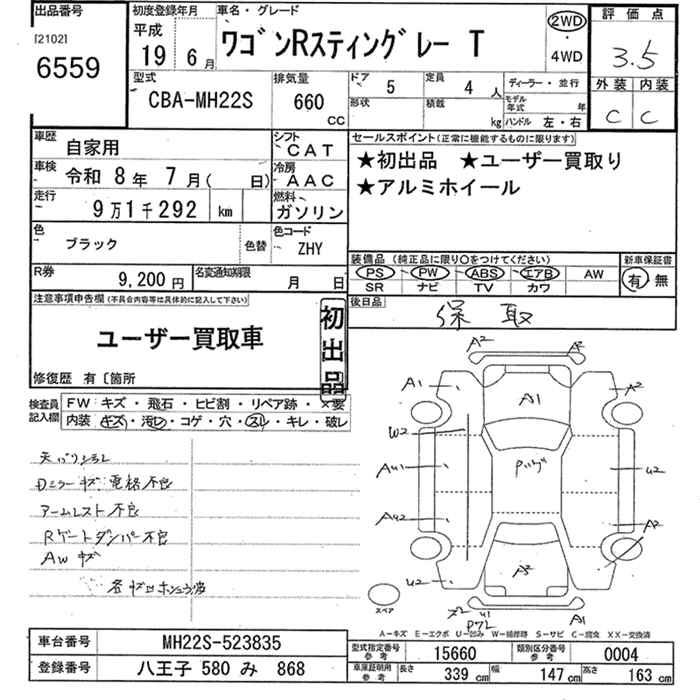 出品番号
[2102]
6559
初度登録年月
平成
19年 6月
車名・グレード
ワゴンRスティングレー T
2WD
・
4WD
評価点
3.5
外装 内装
C C
型式
CBA-MH22S
排気量
660
cc
ドア
5
形状
定員
4 人
積載
kg
ディーラー・並行
モデル年式 年
ハンドル 左・右
車歴
自家用
シフト
CAT
車検
令和 8年 7月( 日)
冷房
AAC
走行
9万1千292 km
燃料
ガソリン
色
ブラック
色替
色コード
ZHY
R券
9,200円
名変通知期限
月 日
セールスポイント(正常に機能するものに限ります)
★初出品 ★ユーザー買取り
★アルミホイール
装備品(純正品に限り〇をつけてください)
PS PW ABS エアB AW
SR ナビ TV カワ
新車保証書
有 無
後日品
保 取
注意事項申告欄(不具合内容等は具体的に記入して下さい)
ユーザー買取車
初出品
修復歴 有〔箇所
検査員記入欄
FW キズ・飛石・ヒビ割・リペア跡・×要
内装 キズ・汚レ・コゲ・穴・スレ・キレ・破レ
Dミラーキズ 電格不良
アームレスト不良
Rゲートダンパー不良
AWキズ
A2
A2
A1
A1
A2
W2
AU1
U2
AU2
A2
U2
A2
X2
U1
A1
スペア
A-キズ E-エクボ U-凹み W-補修跡 S-サビ C-腐食 XX-交換済
車台番号
MH22S-523835
登録番号
八王子 580 み 868
型式指定番号
参考
15660
類別区分番号
参考
0004
車庫証明用
参考
長さ 339 cm 幅 147 cm 高さ 163 cm